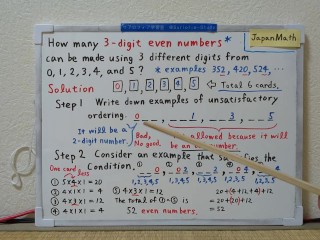 JapanMath
How many 3-digit even numbers*
can be made using 3 different digits from
0, 1, 2, 3, 4, and 5 ? * examples 352, 420, 524, ...
Solution 0 1 2 3 4 5 ⇐ Total 6 cards.
Step 1 Write down examples of unsatisfactory
ordering. 0 _ _, _ _ 1, _ _ 3, _ _ 5
It will be a Bad, allowed because it will
2-digit number. No good. be an
Step 2 Consider an example that the
Condition.
One card less
① 5×4×1 = 20 ⑤ 4×3×1 = 12 20+(4+12+4)+12
② 4×1×1 = 4 The total of ①~⑤ is = 20+(20)+12
③ 4×3×1 = 12 52 even numbers. = 52
④ 4×1×1 = 4